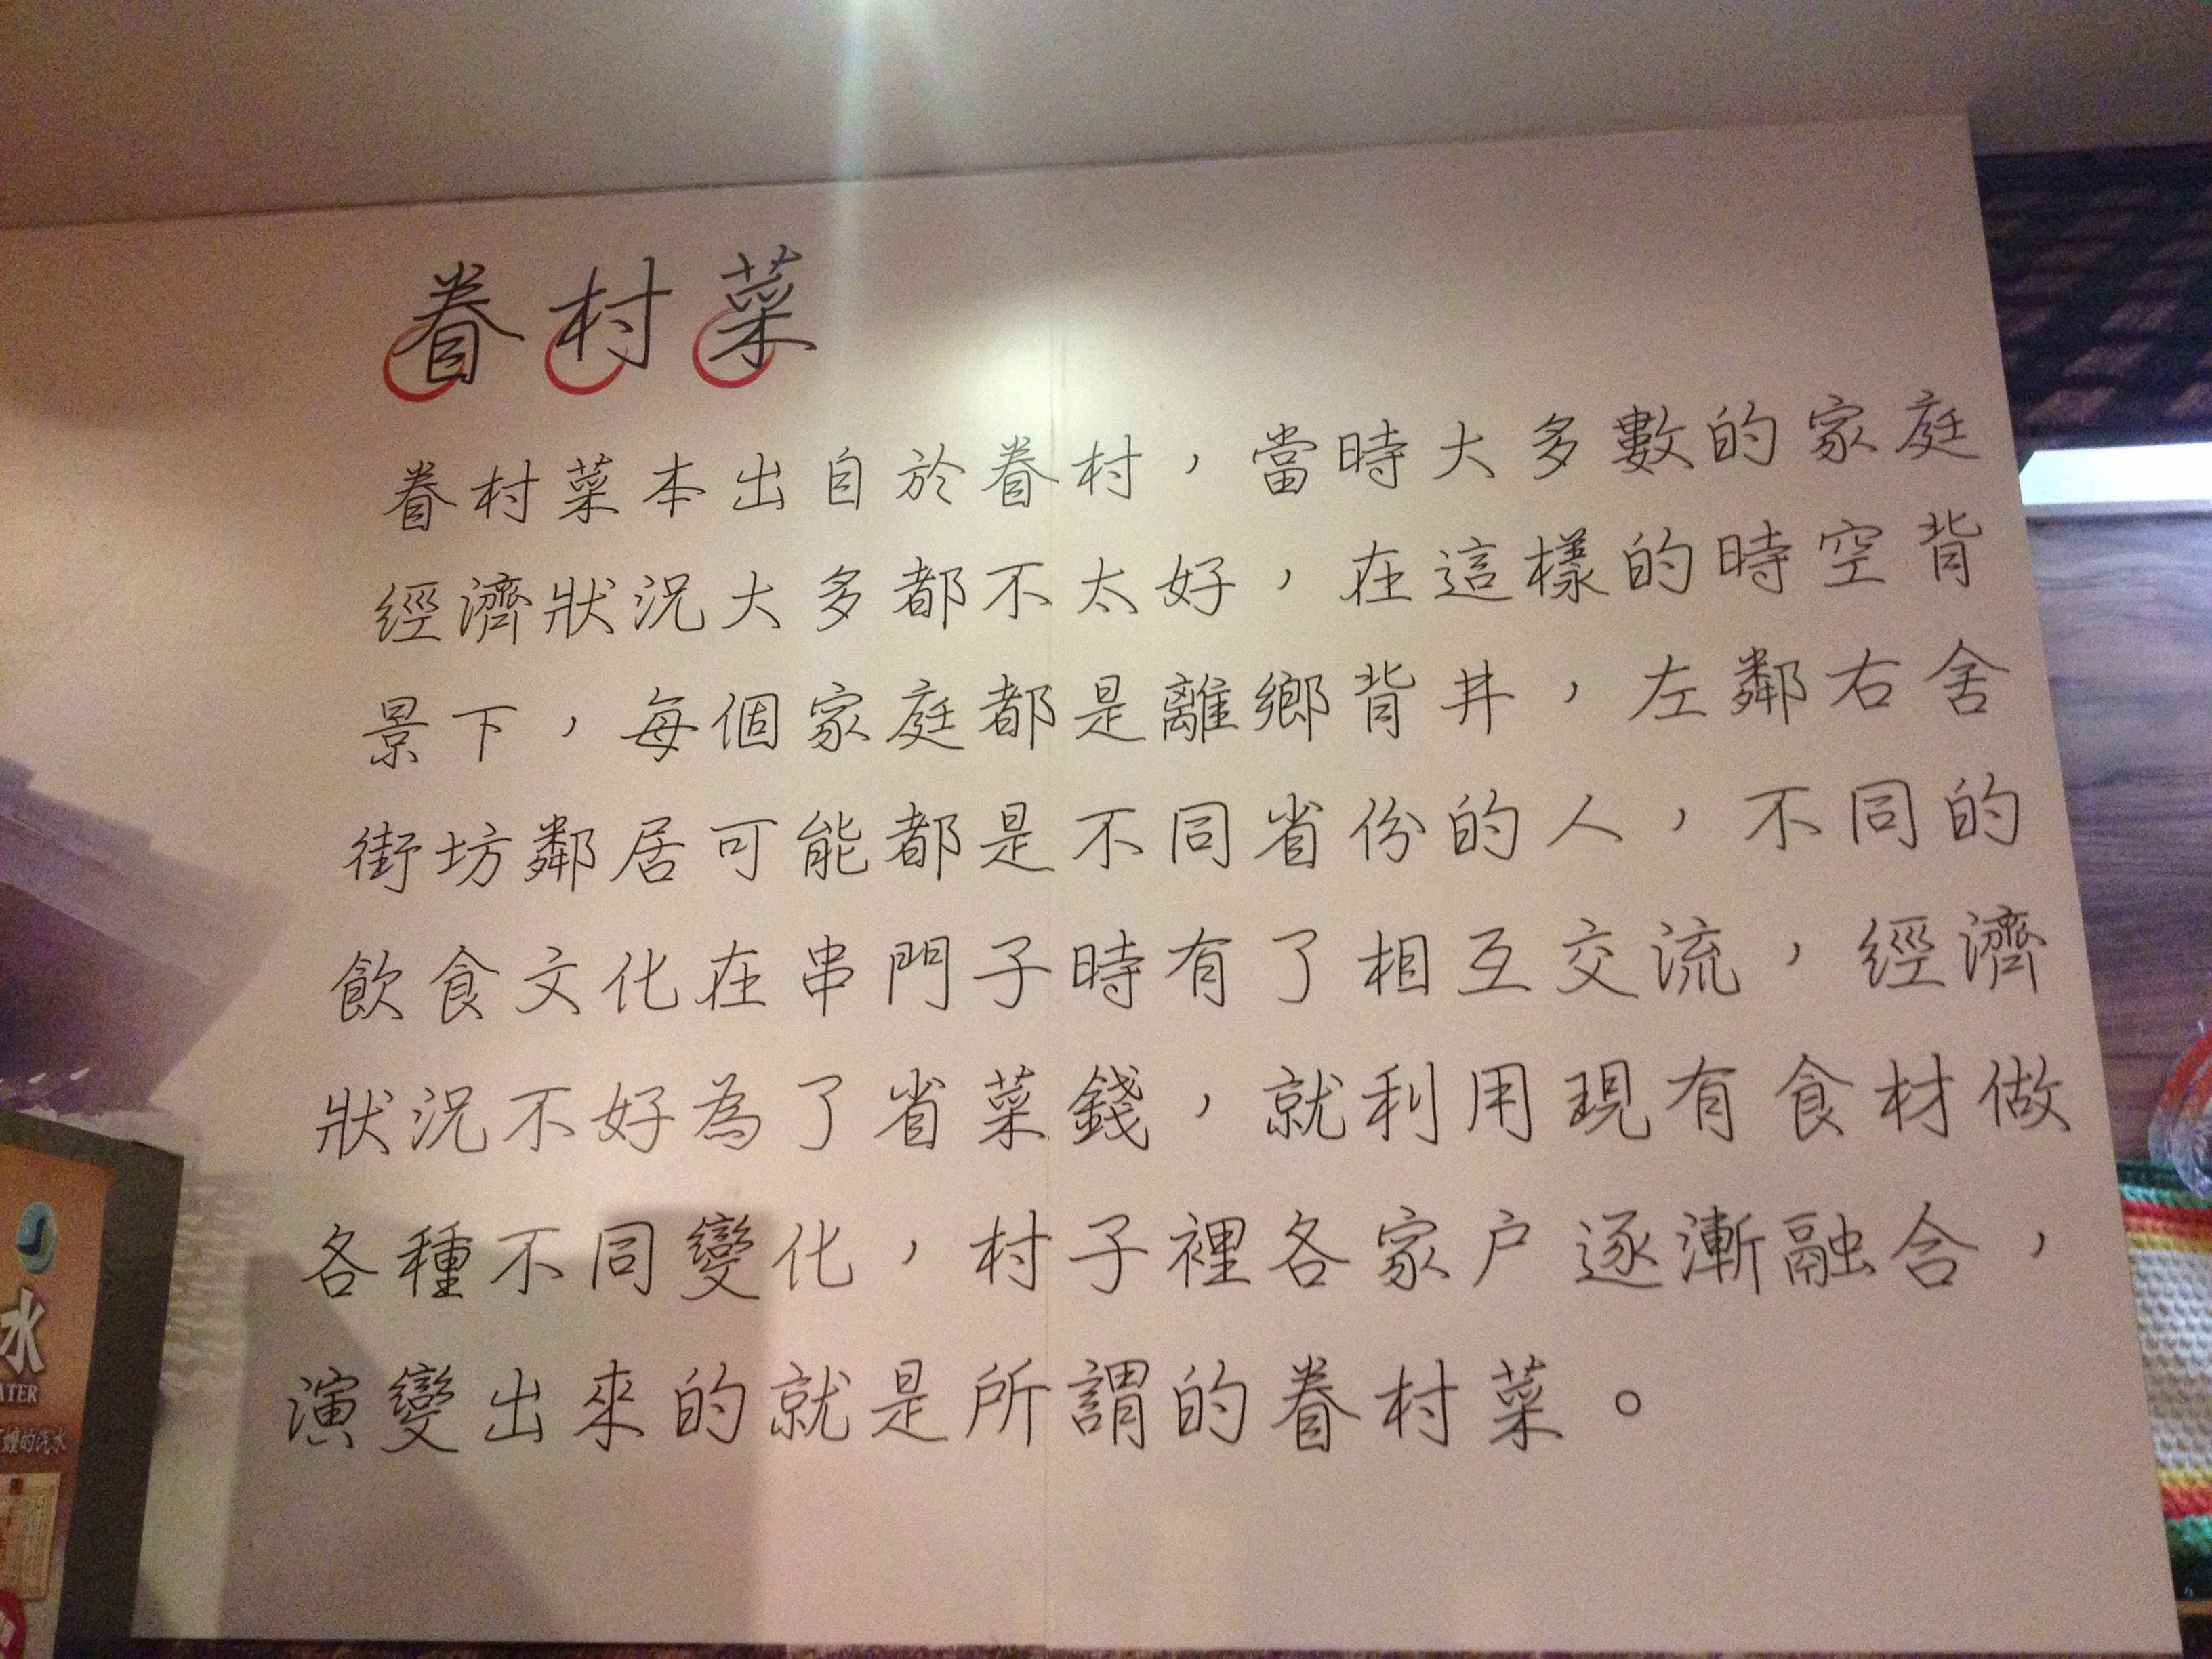 眷村菜
眷村菜本出自於眷村，當時大多數的家庭
經濟狀況大多都不太好，在這樣的時空背
景下，每個家庭都是離鄉背井，左鄰右舍
街坊鄰居可能都是不同省份的人，不同的
飲食文化在串門子時有了相互交流，經濟
狀況不好為了省菜錢，就利用現有食材做
各種不同變化，村子裡各家戶逐漸融合，
演變出來的就是所謂的眷村菜。
水
ATER
的汽水